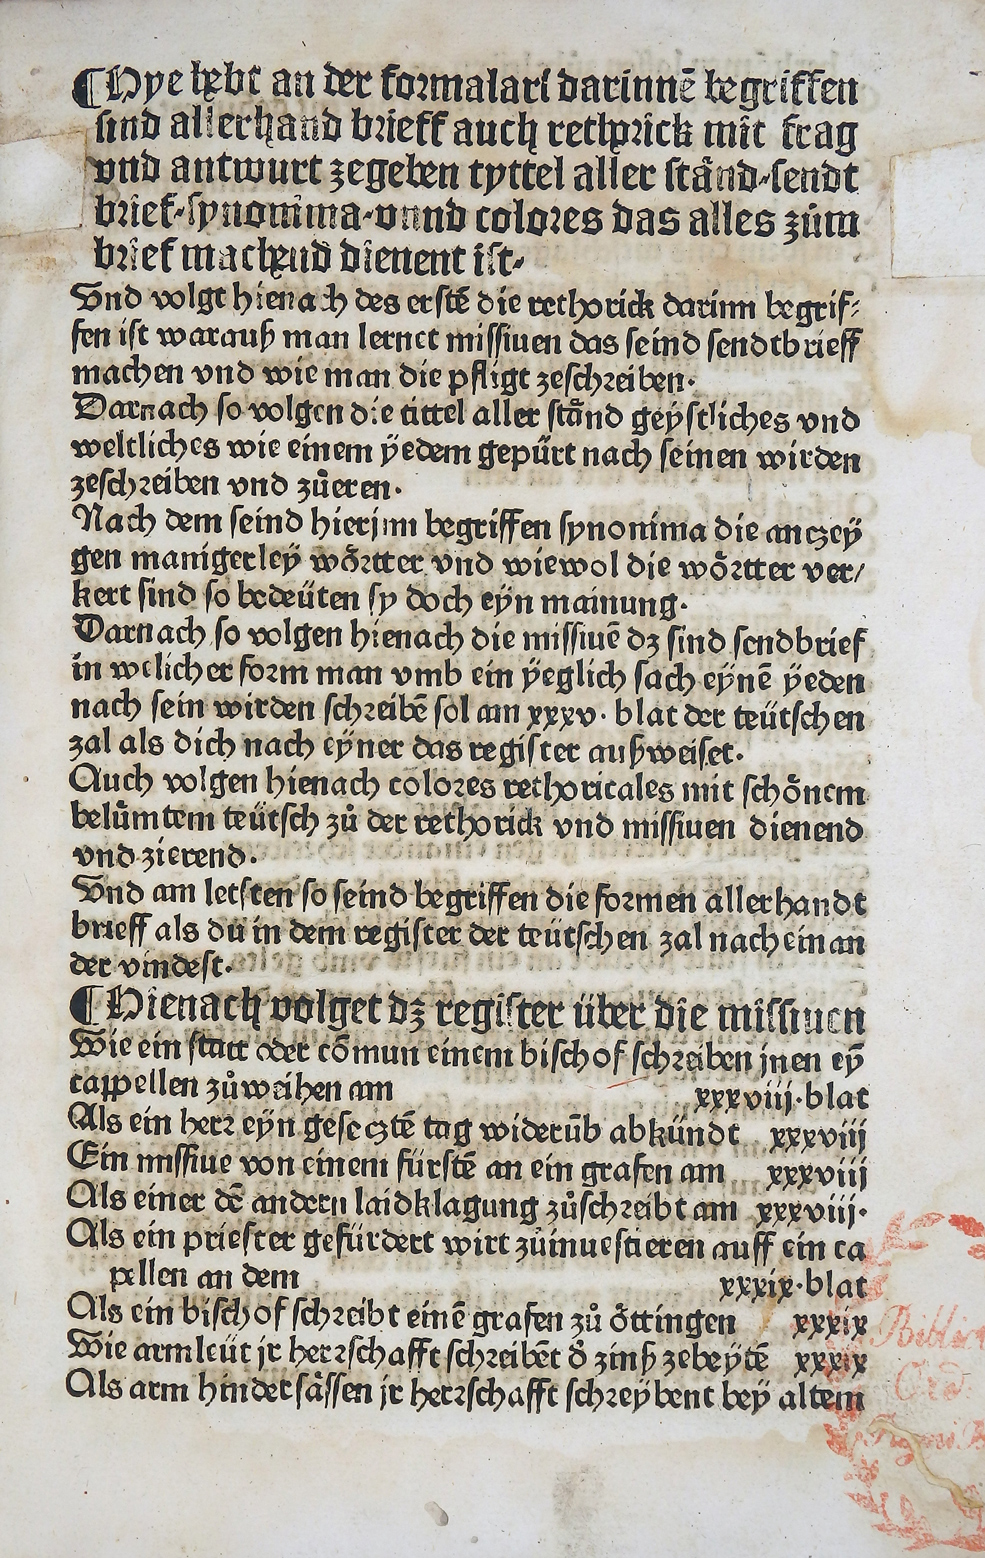 ¶ Hye hebt an der formalari darinnē begriffen
sind allerhand brieff auch rethorick mit frag
vnd antwurt zegeben tyttel aller stånd-sendt
brief-synonima-vnnd colores das alles zům
brief machend dienent ist-
Vnd volgt hienach des erstē die rethorick darinn begrif-
fen ist warauß man lernet missiuen das seind sendtbrieff
machen vnd wie man die pfligt zeschreiben·
Darnach so volgen die tittel aller stånd geÿstliches vnd
weltliches wie einem ÿedem gepürt nach seinen wirden
zeschreiben vnd zůeren·
Nach dem seind hierjnn begriffen synonima die anczeÿ
gen manigerleÿ wőrtter vnd wiewol die wőrtter ver/
kert sind so bedeüten sy doch eÿn mainung·
Darnach so volgen hienach die missiuē dz sind sendbrief
in welicher form man vmb ein ÿeglich sach eÿnē ÿeden
nach sein wirden schreibē sol am xxxv· blat der teütschen
zal als dich nach eÿner das register außweiset·
Auch volgen hienach colores rethoricales mit schőnem
belůmtem teütsch zů der rethorick vnd missiuen dienend
vnd zierend·
Vnd am letsten so seind begriffen die formen allerhandt
brieff als du in dem register der teütschen zal nach einan
der vindest·
¶ Hienach volget dz register über die missiuen
Wie ein statt oder cōmun einem bischof schreiben jnen eȳ
cappellen zůweihen am xxxviii·blat
Als ein herr eÿn gesecztē tag widerūb abkündt xxxviij
Ein missiue von einem fürstē an ein grafen am xxxviij
Als einer dē andern laidklagung zůschreibt am xxxviij·
Als ein priester gefürdert wirt zůinuestieren auff ein ca
pellen an dem xxxix·blat
Als ein bischof schreibt einē grafen zů őttingen xxxix
Wie armleüt jr herrschafft schreibēt d̄ zinß zebeÿtē xxxix
Als arm hindersåssen jr herrschafft schreÿbent beÿ altem